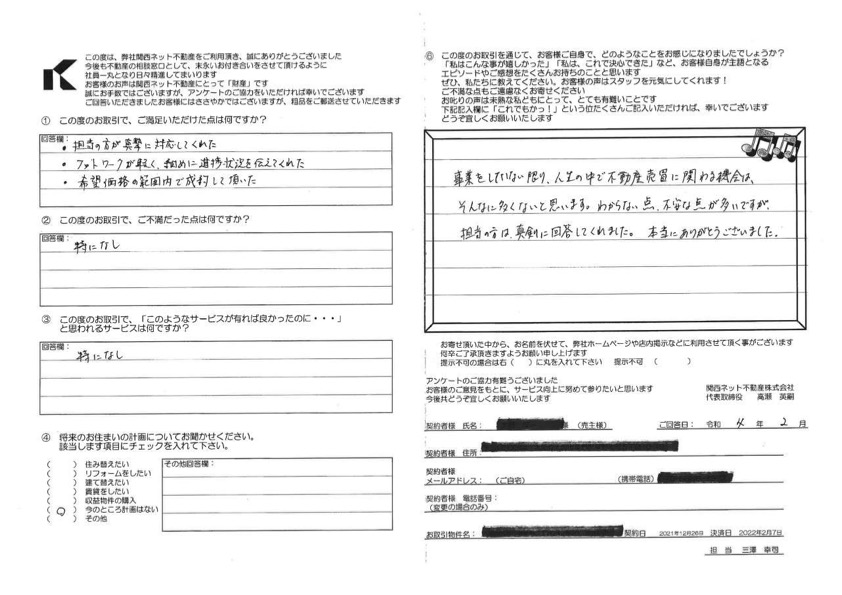 この度は、弊社関西ネット不動産をご利用頂き、誠にありがとうございました
今後も不動産の相談窓口として、末永いお付き合いをさせて頂けるように
社員一丸となり日々精進してまいります
お客様のお声は関西ネット不動産にとって「財産」です
誠にお手数ではございますが、アンケートのご協力をいただければ幸いでございます
ご回答いただきましたお客様にはささやかではございますが、粗品をご郵送させていただきます
① この度のお取引で、ご満足いただけた点は何ですか?
回答欄:
・担当の方が真摯に対応してくれた
・フットワークが軽く、初めに進捗状況を伝えてくれた
・希望価格の範囲内で成約して頂いた
② この度のお取引で、ご不満だった点は何ですか?
回答欄:
特になし
③ この度のお取引で、「このようなサービスが有れば良かったのに・・・」
と思われるサービスは何ですか?
回答欄:
特になし
④ 将来のお住まいの計画についてお聞かせください。
該当します項目にチェックを入れて下さい。
( ) 住み替えたい
( ) リフォームをしたい
( ) 建て替えたい
( ) 賃貸をしたい
( ) 収益物件の購入
(○) 今のところ計画はない
( ) その他
その他回答欄:
⑥ この度のお取引を通じて、お客様ご自身で、どのようなことをお感じになりましたでしょうか?
「私はこんな事が嬉しかった」「私は、これで決心できた」など、お客様自身が主語となる
エピソードやご感想をたくさんお持ちのことと思います
ぜひ、私たちに教えてください。お客様の声はスタッフを元気にしてくれます!
ご不満な点もご遠慮なくお寄せください
お叱りの声は未熟な私どもにとって、とても有難いことです
下記記入欄に「これでもかっ!」という位たくさんご記入いただければ、幸いでございます
どうぞ宜しくお願いいたします
事業をしていない限り、人生の中で不動産売買に関わる機会は、
そんなに多くないと思います。わからない点、不安な点が多いですが、
担当の方は、真剣に回答してくれました。本当にありがとうございました。
お寄せ頂いた中から、お名前を伏せて、弊社ホームページや店内掲示などに利用させて頂く事がございます
何卒ご了承頂きますようお願い申し上げます
提示不可の場合は右( )に丸を入れて下さい 提示不可 ( )
アンケートのご協力有難うございました
お客様のご意見をもとに、サービス向上に努めて参りたいと思います
今後共どうぞ宜しくお願いいたします
関西ネット不動産株式会社
代表取締役 高瀬 英嗣
契約者様 氏名: 様 (売主様) ご回答日: 令和 4 年 2 月
契約者様 住所:
契約者様
メールアドレス: (ご自宅) (携帯電話)
契約者様 電話番号:
(変更の場合のみ)
お取引物件名: 契約日 2021年12月26日 決済日 2022年2月7日
担 当 三澤 幸司